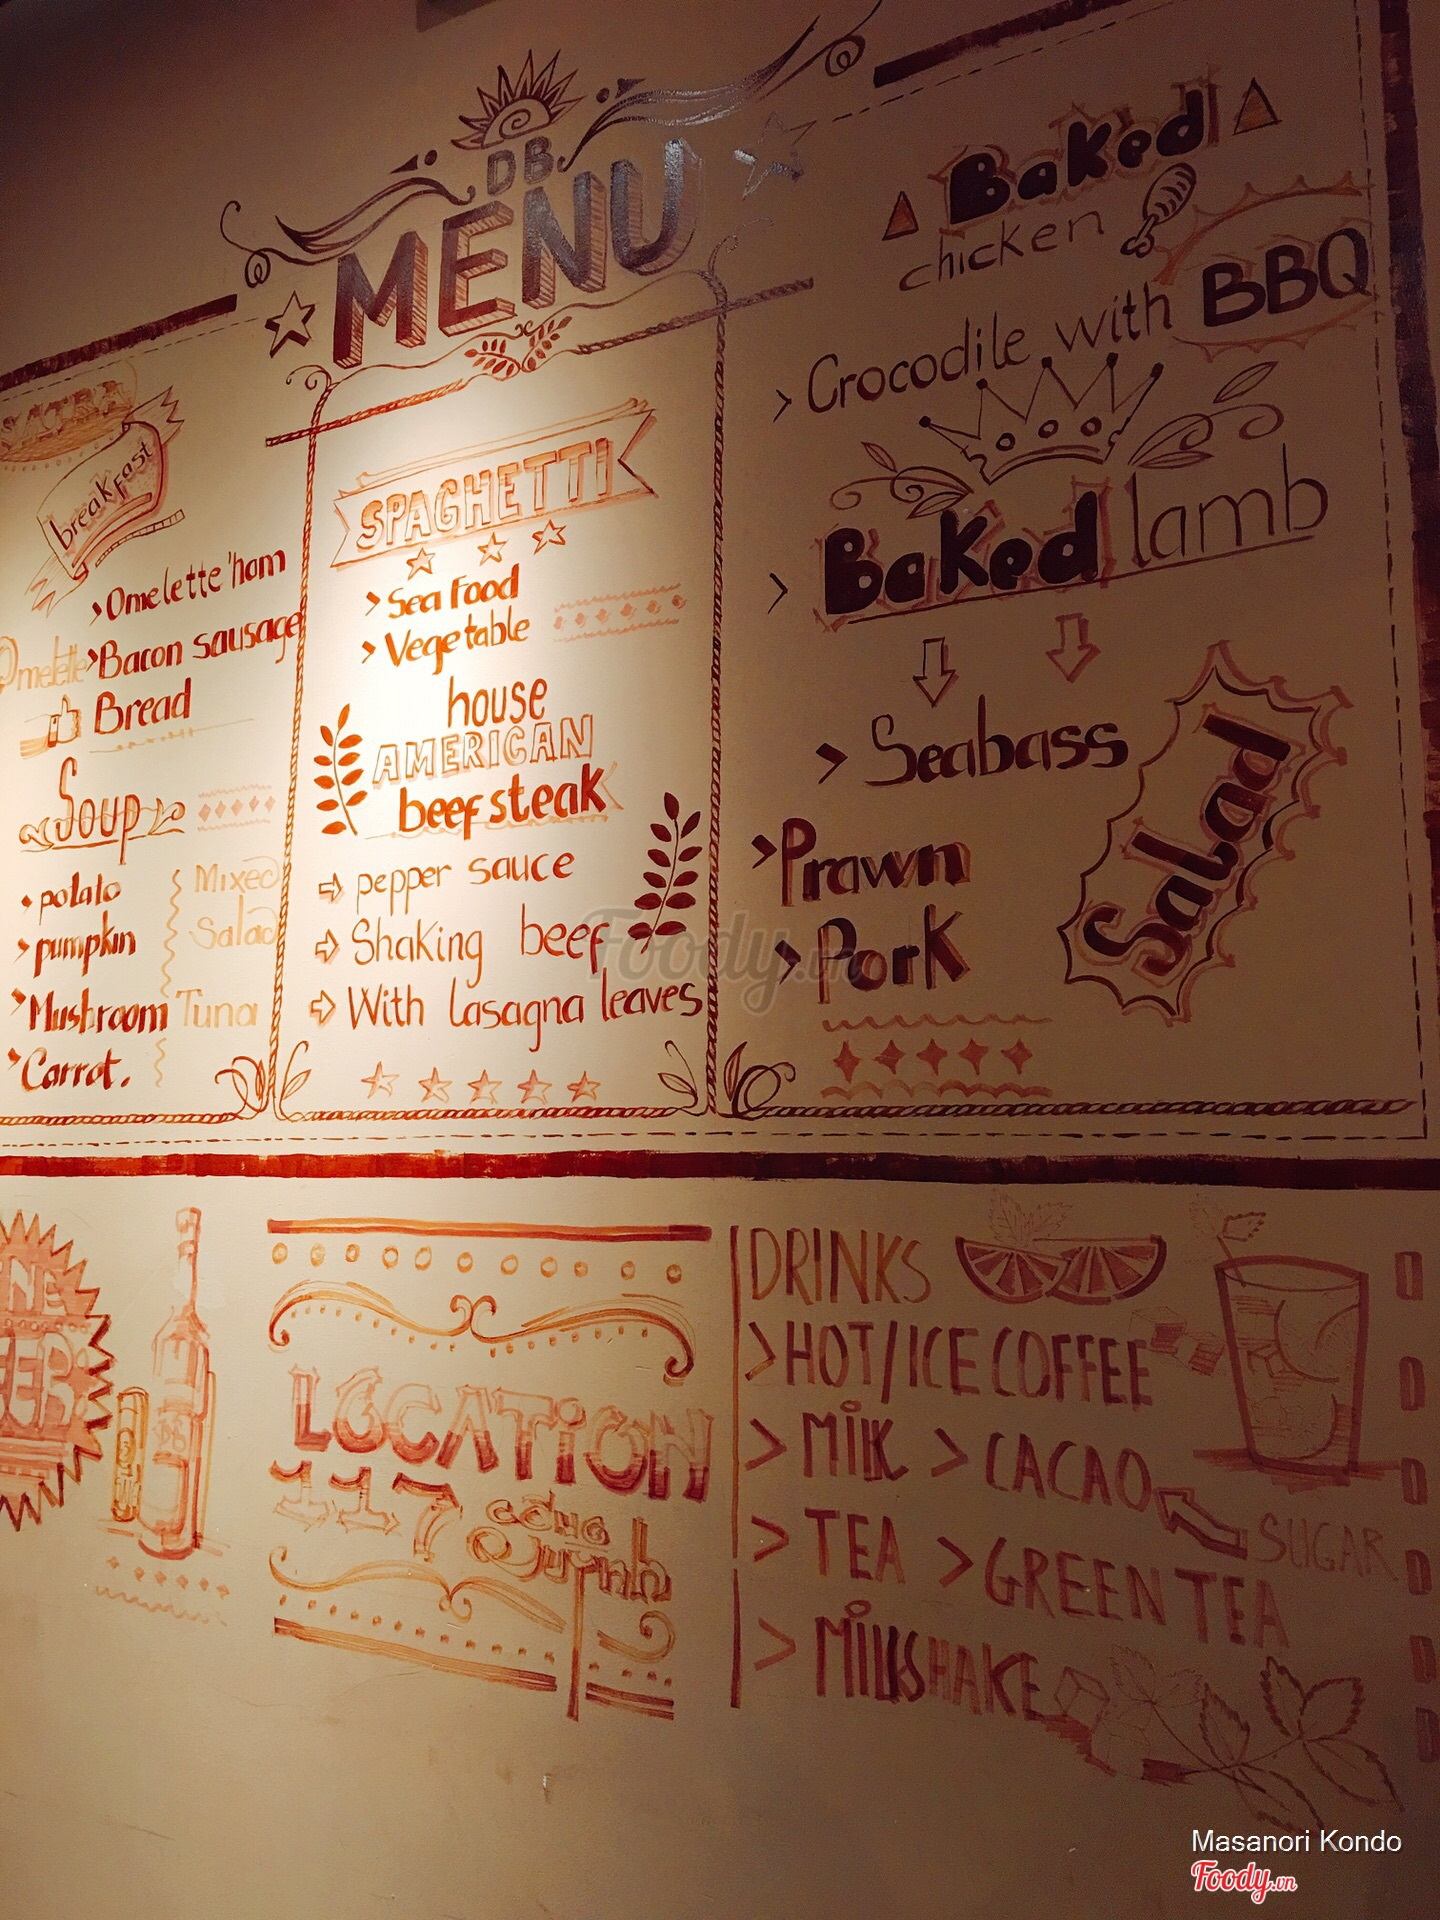 DB
MENU
breakfast
>Omelette'ham
Omelette
>Bacon sausage
Bread
Soup
potato
>pumpkin
>Mushroom
>Carrot.
Mixed
Salad
Tuna
SPAGHETTI
>Sea Food
>Vegetable
house
AMERICAN
beef steak
pepper sauce
Shaking beef
With lasagna leaves
Baked
chicken
>Crocodile with BBQ
>Baked lamb
>Seabass
>Prawn
>Pork
Salad
LOCATiON
117 CỐNG
Quỳnh
DRINKS
>HOT/ICE COFFEE
>MiLK >CACAO
SUGAR
>TEA >GREEN TEA
>MiLKSHAKE
Foody.vn
Masanori Kondo
Foody.vn